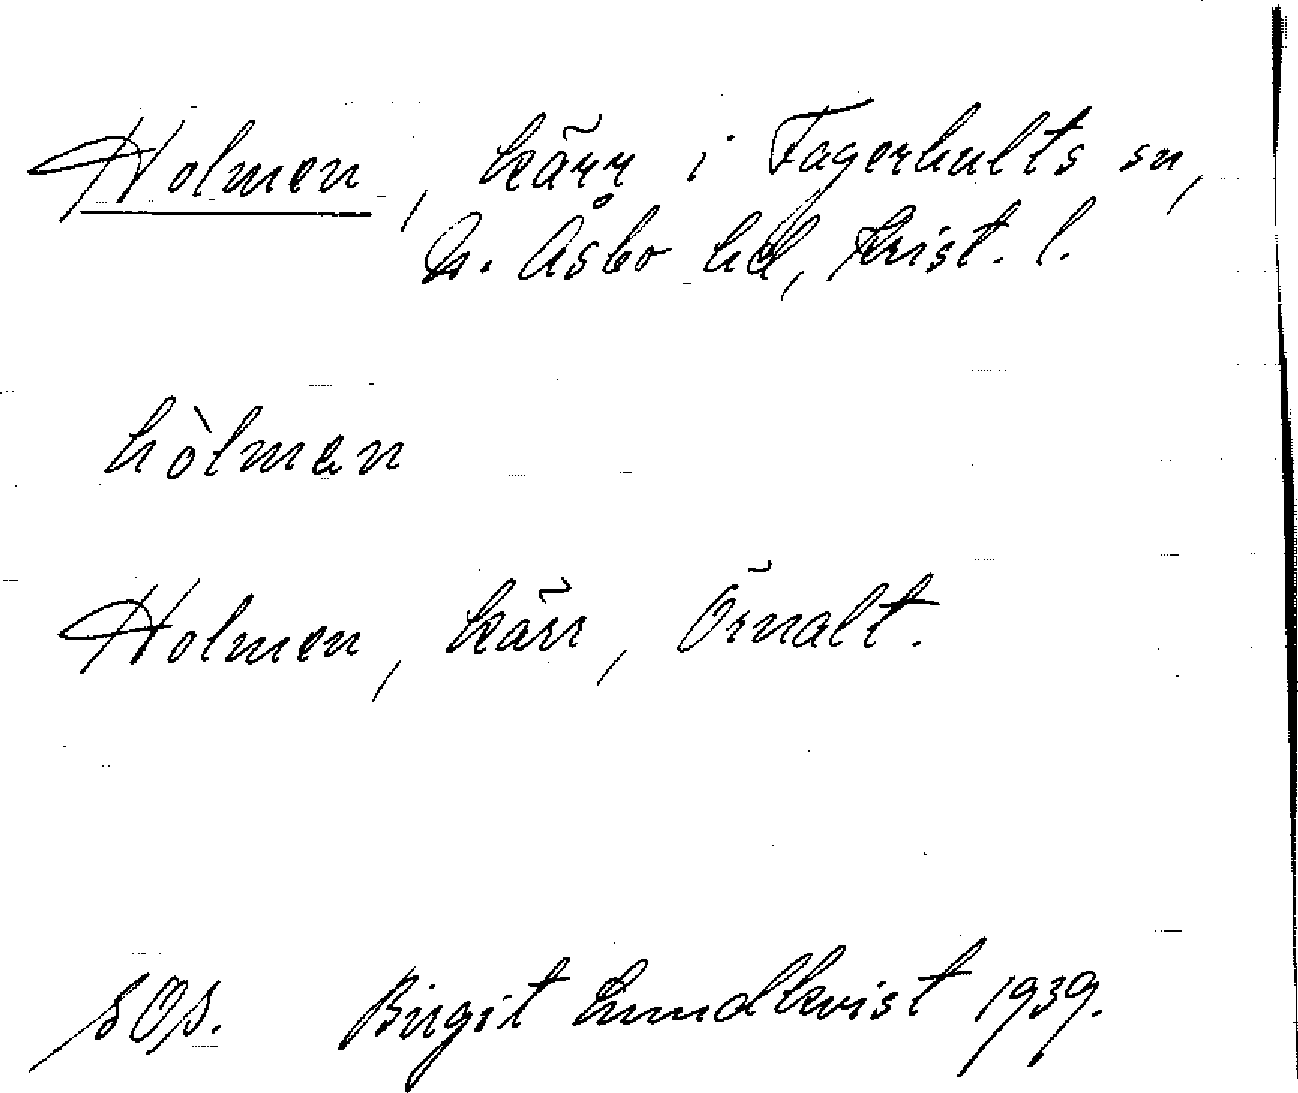 Holmen, kärr i Fagerhults sn,
N. Åsbo hd, Krist. l.
hòlmən
Holmen, kärr, Örnalt.
SOS. Birgit Lundkvist 1939.